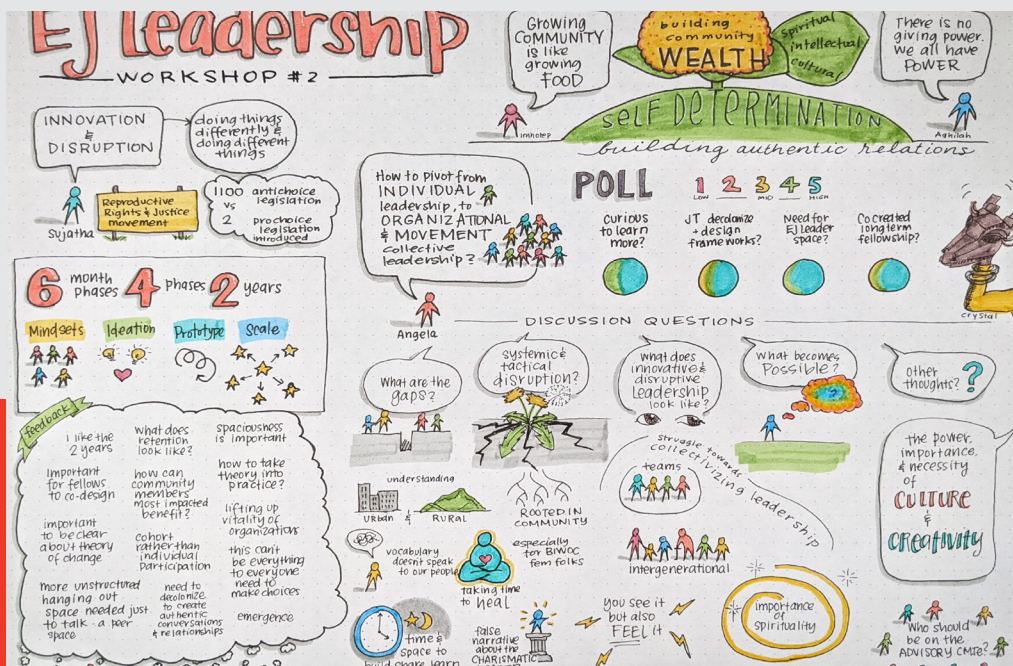 EJ Leadership
WORKSHOP #2
INNOVATION
&
DISRUPTION
doing things
differently &
doing different
things
Sujatha
Reproductive
Rights & Justice
movement
1100 antichoice
legislation
vs
2 prochoice
legislation
introduced
6 month
phases
4 phases
2 years
Mindsets
Ideation
Prototype
Scale
feedback
I like the
2 years
important
for fellows
to co-design
important
to be clear
about theory
of change
more unstructured
hanging out
space needed just
to talk - a peer
space
what does
retention
look like?
how can
community
members
most impacted
benefit?
cohort
rather than
individual
participation
need to
decolonize
to create
authentic
conversations
& relationships
spaciousness
is important
how to take
theory into
practice?
lifting up
vitality of
organizations
this can't
be everything
to everyone
need to
make choices
emergence
Growing
COMMUNITY
is like
growing
FOOD
Imhotep
building
community
WEALTH
spiritual
intellectual
cultural
There is no
giving power.
we all have
POWER
Aghilah
SELF DETERMINATION
building authentic relations
How to pivot from
INDIVIDUAL
leadership, to
ORGANIZATIONAL
& MOVEMENT
collective
leadership?
Angela
POLL
1 2 3 4 5
LOW MID HIGH
curious
to learn
more?
JT decolonize
+ design
frameworks?
Need for
EJ Leader
space?
Co created
longterm
fellowship?
crystal
DISCUSSION QUESTIONS
What are the
gaps?
systemic &
tactical
disruption?
what does
innovative &
disruptive
leadership
look like?
what becomes
Possible?
?
other
thoughts?
?
understanding
urban & RURAL
ROOTED IN
COMMUNITY
vocabulary
doesn't speak
to our people
taking time
to heal
especially
for BIWOC
fem folks
time &
space to
build share learn
false
narrative
about the
CHARISMATIC
struggle towards
collectivizing leadership
teams
intergenerational
you see it
but also
FEEL it
importance
of
spirituality
the power,
importance,
& necessity
of
CULTURE
&
CREATIVITY
Who should
be on the
ADVISORY CMTE?